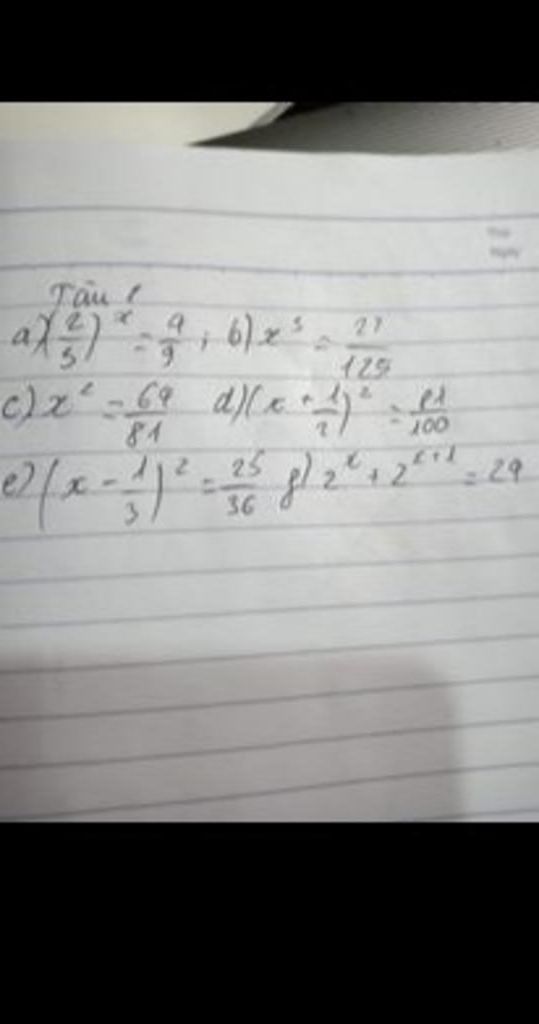 a) (2/3)^x = 4/9 ; b) x^3 = 27/125
c) x^2 = 64/81 d) (x + 1/2)^2 = 81/100
e) (x - 1/3)^2 = 25/36 g) 2^x + 2^{x+1} = 24